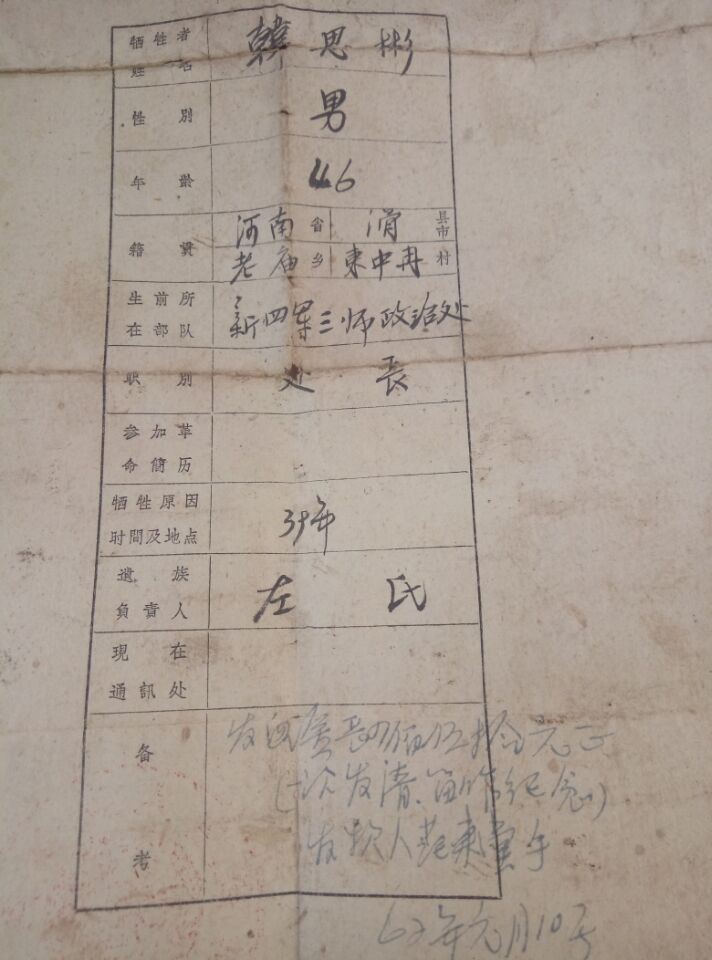 牺牲者
姓名
韓思彬
性別
男
年龄
46
籍貫
河南省 滑 县市
老庙乡 東中冉村
生前所
在部队
新四军三师政治处
职別
处長
参加革
命简历
牺牲原因
时間及地点
39年
遗族
負責人
左氏
現在
通訊处
备
考
元正
(一次发清.留作纪念)
发款人范東
62年元月10号